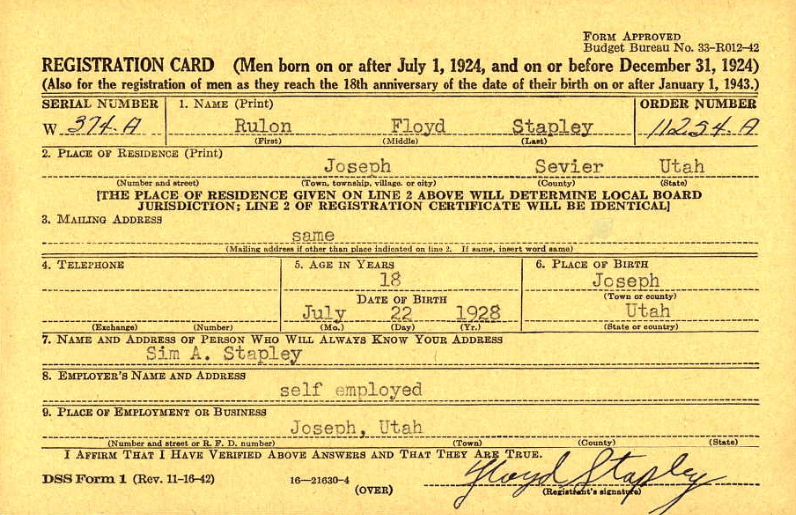 FORM APPROVED
Budget Bureau No. 33-R012-42
REGISTRATION CARD (Men born on or after July 1, 1924, and on or before December 31, 1924)
(Also for the registration of men as they reach the 18th anniversary of the date of their birth on or after January 1, 1943.)
SERIAL NUMBER 1. NAME (Print) ORDER NUMBER
W 374.A Rulon Floyd Stapley 11254.A
(First) (Middle) (Last)
2. PLACE OF RESIDENCE (Print)
Joseph Sevier Utah
(Number and street) (Town, township, village, or city) (County) (State)
[THE PLACE OF RESIDENCE GIVEN ON LINE 2 ABOVE WILL DETERMINE LOCAL BOARD
JURISDICTION; LINE 2 OF REGISTRATION CERTIFICATE WILL BE IDENTICAL]
3. MAILING ADDRESS
same
(Mailing address if other than place indicated on line 2. If same, insert word same)
4. TELEPHONE 5. AGE IN YEARS 6. PLACE OF BIRTH
18 Joseph
DATE OF BIRTH (Town or county)
July 22 1928 Utah
(Exchange) (Number) (Mo.) (Day) (Yr.) (State or country)
7. NAME AND ADDRESS OF PERSON WHO WILL ALWAYS KNOW YOUR ADDRESS
Sim A. Stapley
8. EMPLOYER'S NAME AND ADDRESS
self employed
9. PLACE OF EMPLOYMENT OR BUSINESS
Joseph, Utah
(Number and street or R. F. D. number) (Town) (County) (State)
I AFFIRM THAT I HAVE VERIFIED ABOVE ANSWERS AND THAT THEY ARE TRUE.
DSS Form 1 (Rev. 11-16-42) 16—21630-4 Floyd Stapley
(OVER) (Registrant's signature)